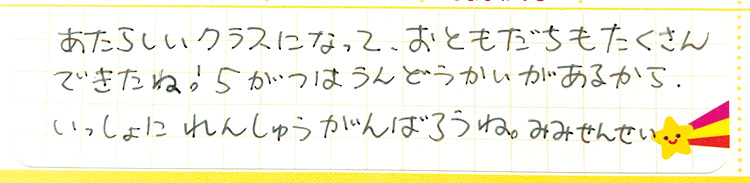 あたらしいクラスになって、おともだちもたくさん
できたね！5がつはうんどうかいがあるから、
いっしょに れんしゅうがんばろうね。みみせんせい